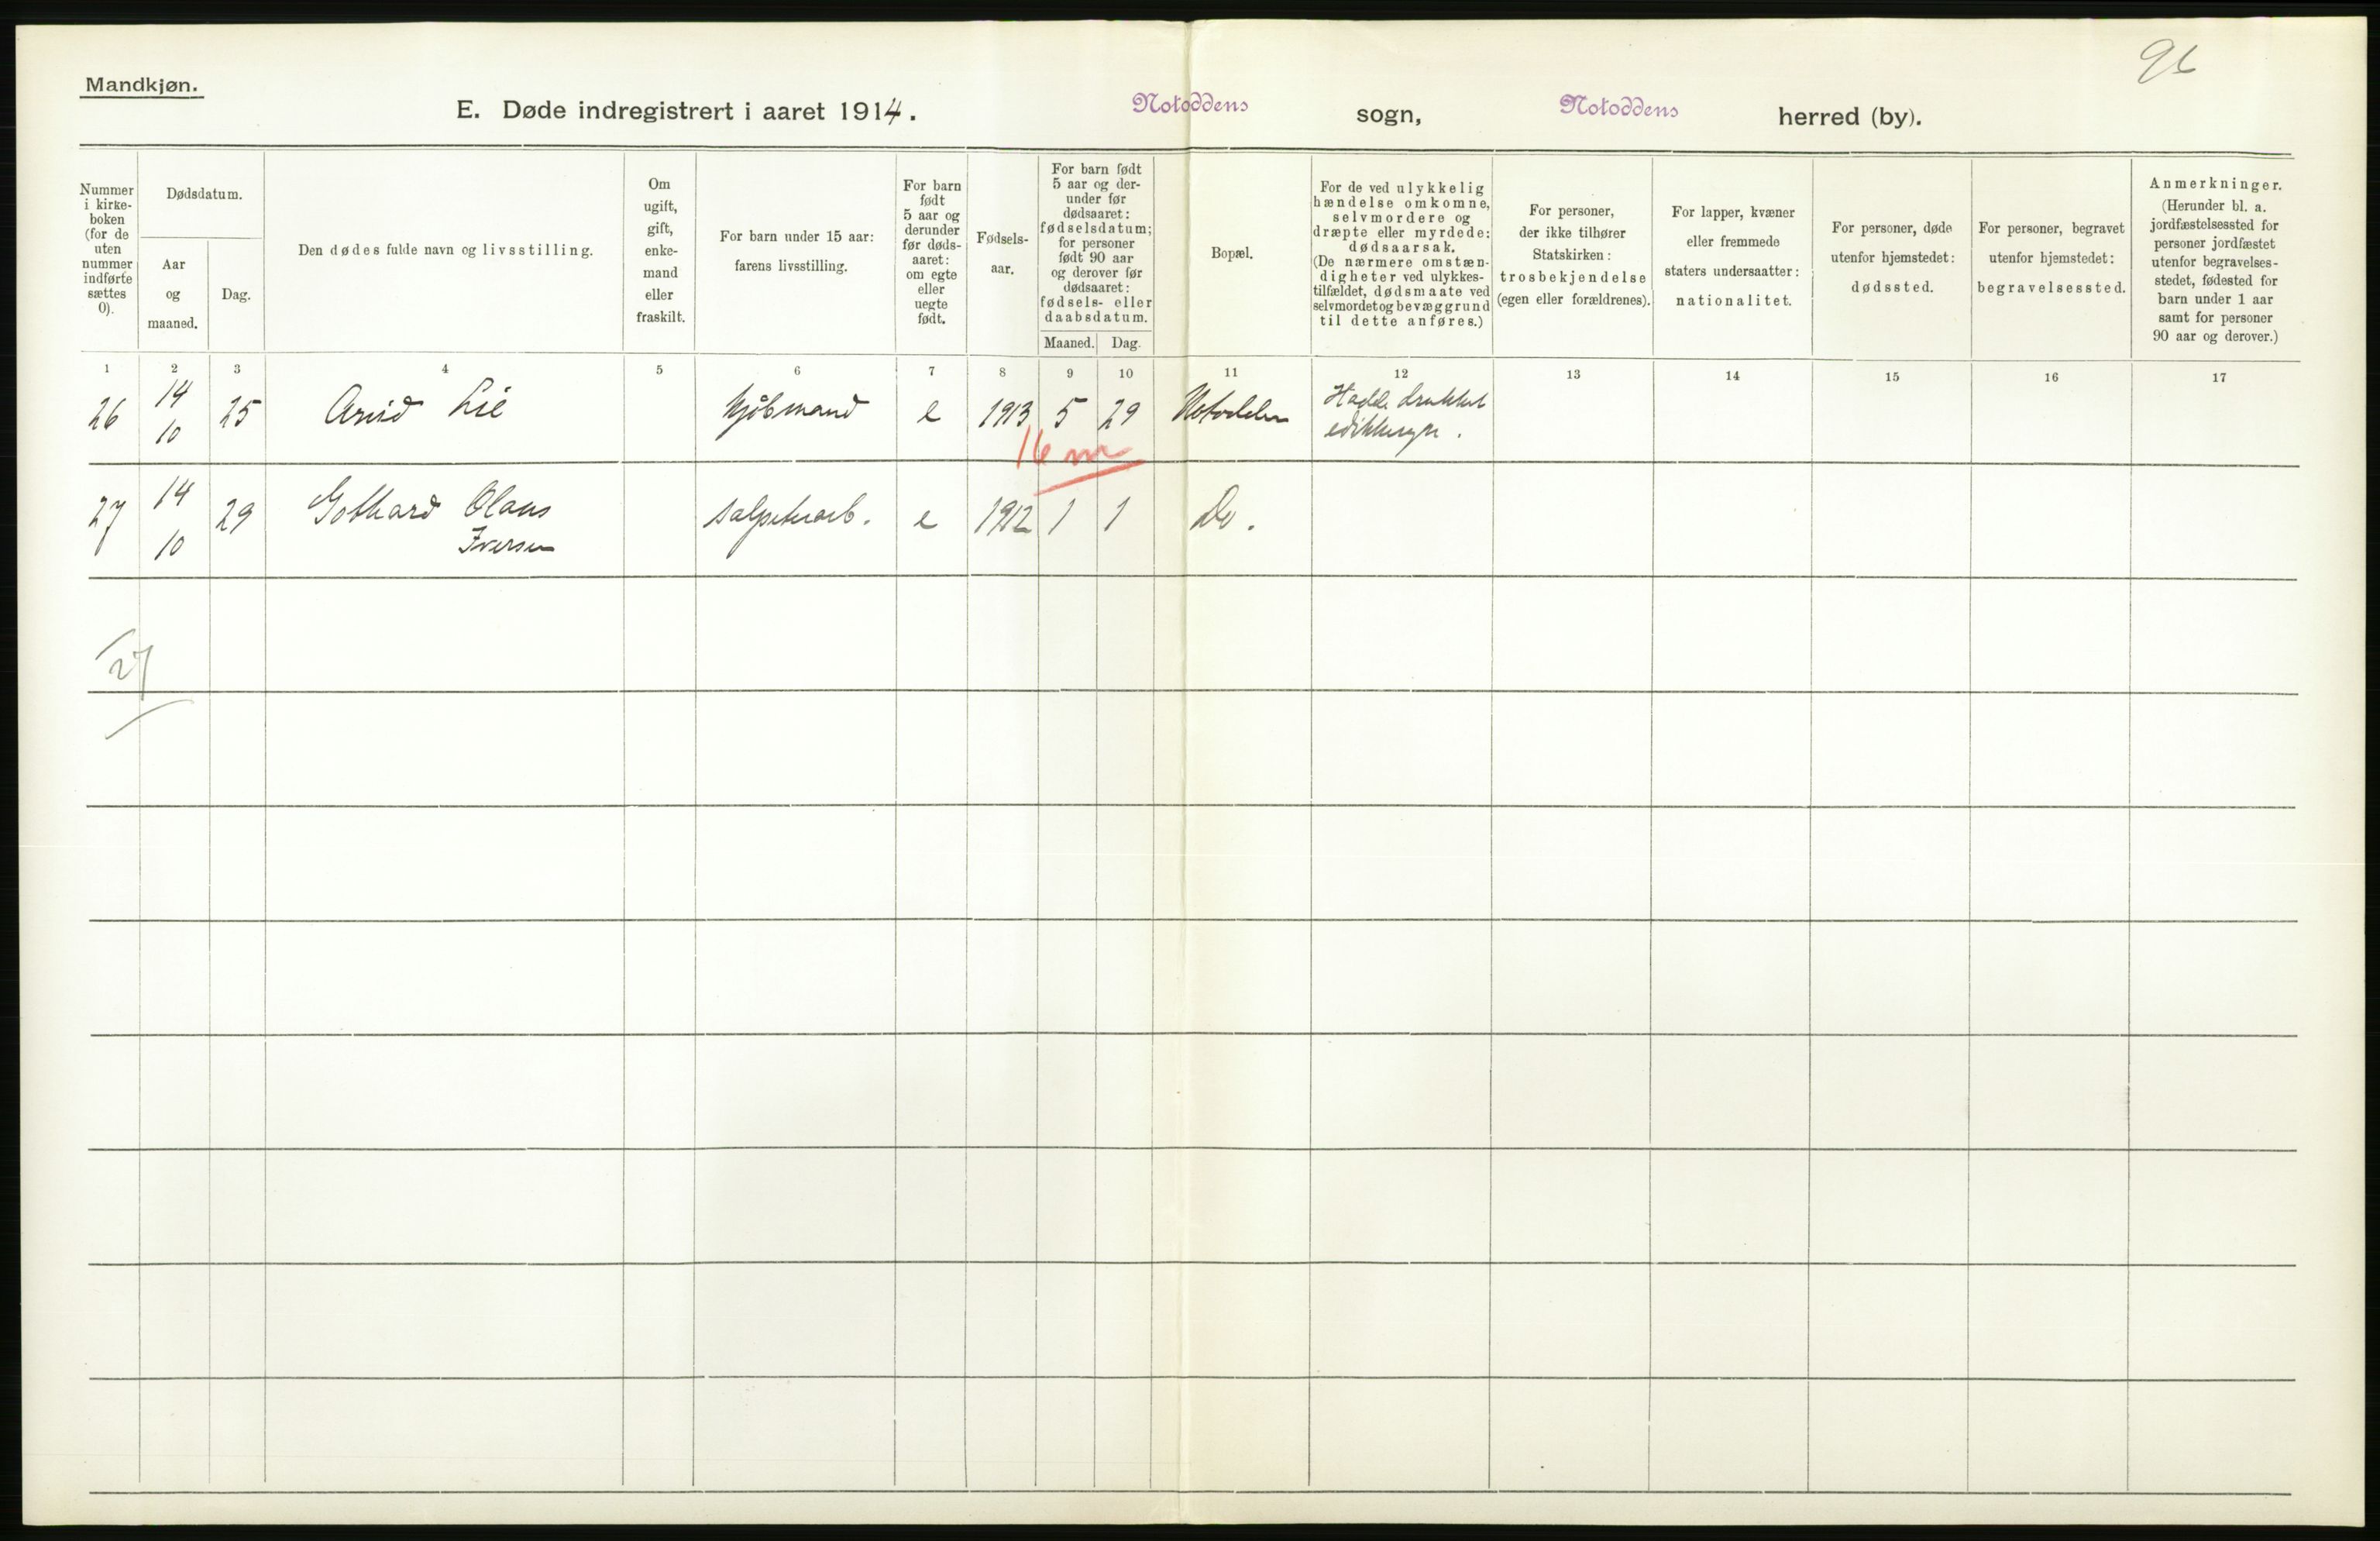 96
Mandkjøn.
E. Døde indregistrert i aaret 1914. Notoddens sogn, Notoddens herred (by).
Nummer
i kirke-
boken
(for de
uten
nummer
indførte
sættes
0).
Dødsdatum.
Aar
og
maaned.
Dag.
Den dødes fulde navn og livsstilling.
Om
ugift,
gift,
enke-
mand
eller
fraskilt.
For barn under 15 aar:
farens livsstilling.
For barn
født
5 aar og
derunder
før døds-
aaret:
om egte
eller
uegte
født.
Fødsels-
aar.
For barn født
5 aar og der-
under før
dødsaaret:
fødselsdatum;
for personer
født 90 aar
og derover før
dødsaaret:
fødsels- eller
daabsdatum.
Maaned. Dag.
Bopæl.
For de ved ulykkelig
hændelse omkomne,
selvmordere og
dræpte eller myrdede:
dødsaarsak.
(De nærmere omstæn-
digheter ved ulykkes-
tilfældet, dødsmaate ved
selvmordet og bevæggrund
til dette anføres.)
For personer,
der ikke tilhører
Statskirken:
trosbekjendelse
(egen eller forældrenes).
For lapper, kvæner
eller fremmede
staters undersaatter:
nationalitet.
For personer, døde
utenfor hjemstedet:
dødssted.
For personer, begravet
utenfor hjemstedet:
begravelsessted.
Anmerkninger.
(Herunder bl. a.
jordfæstelsessted for
personer jordfæstet
utenfor begravelses-
stedet, fødested for
barn under 1 aar
samt for personer
90 aar og derover.)
1 2 3 4 5 6 7 8 9 10 11 12 13 14 15 16 17
26 14 10 25 Arvid Lie kjøbmand e 1913 5 29 Notodden Hadde drukket
edikksyre.
16 m
27 14 10 29 Gothard Olaus salpeterarb. e 1912 1 1 Do.
Iversen
27